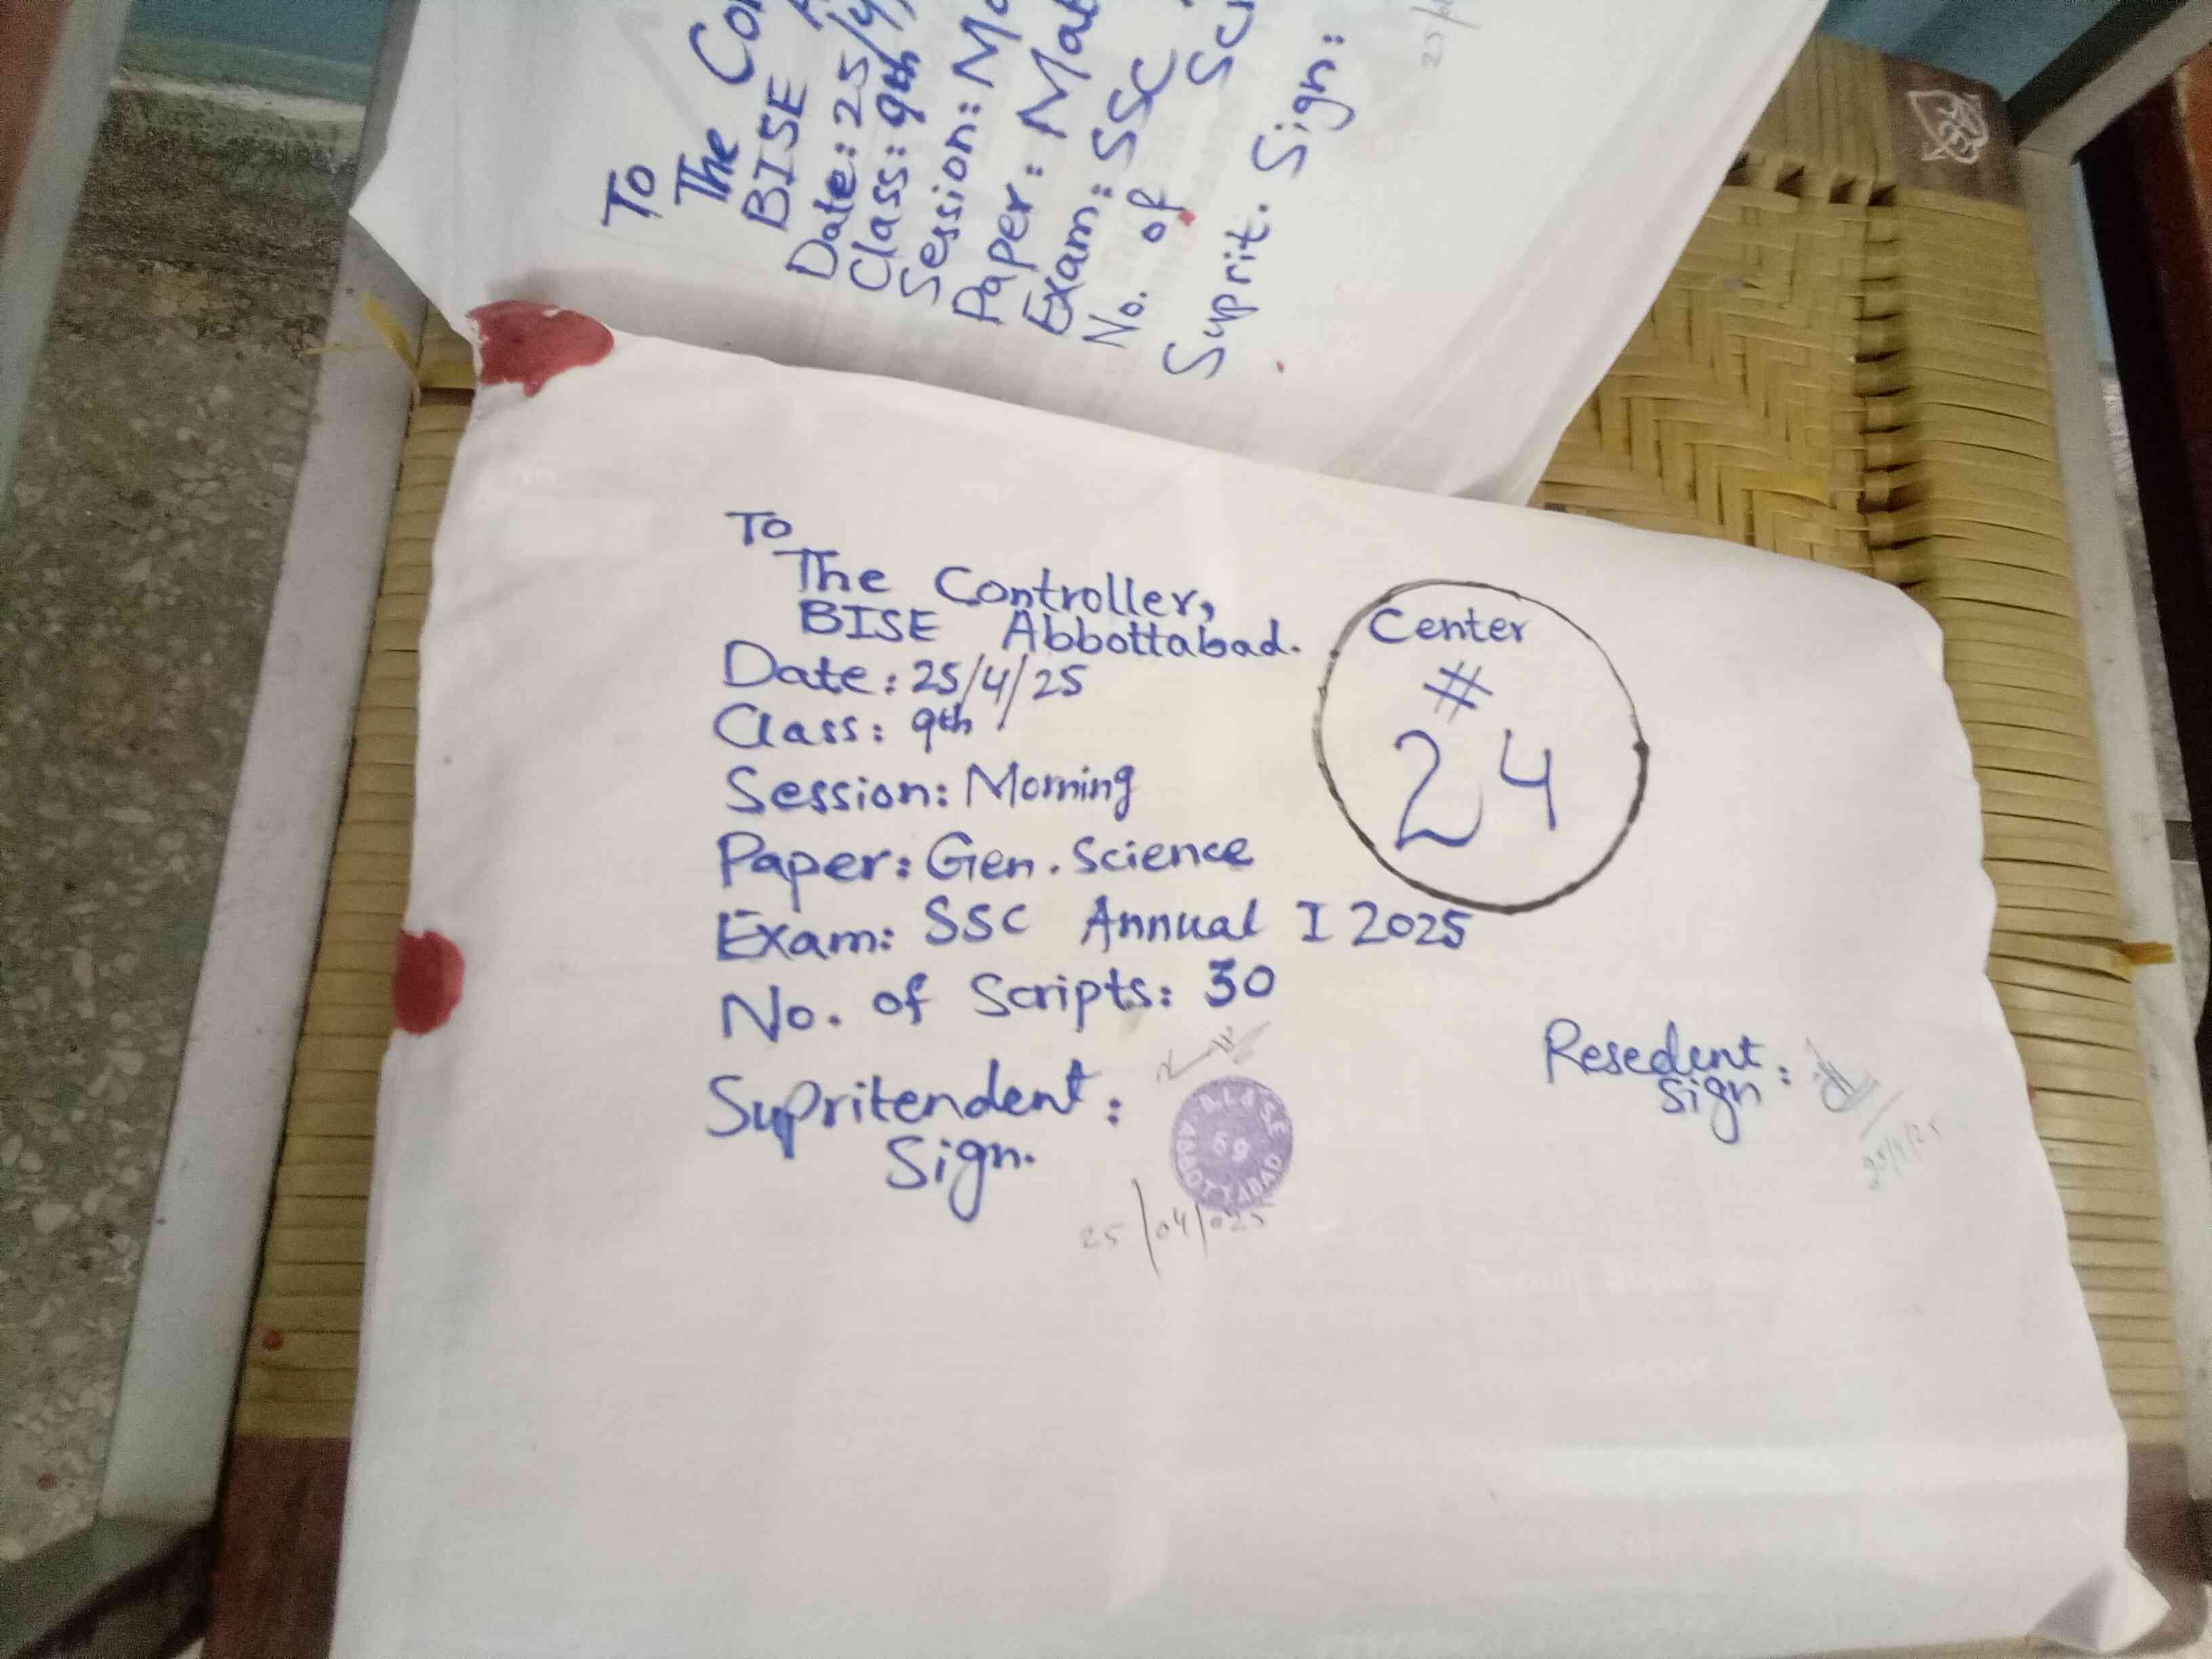 To
The
BISE
Date: 25/4/
Class: 9th
Session:
Paper:
Exam: SSC
No. of
Suprit. Sign:
To
The Controller,
BISE Abbottabad.
Date: 25/4/25
Class: 9th
Session: Morning
Paper: Gen. Science
Exam: SSC Annual I 2025
No. of Scripts: 30
Supritendent:
Sign.
25/04/025
Center
#
24
B.I.&SE
59
ABBOTTABAD
Resedent:
Sign